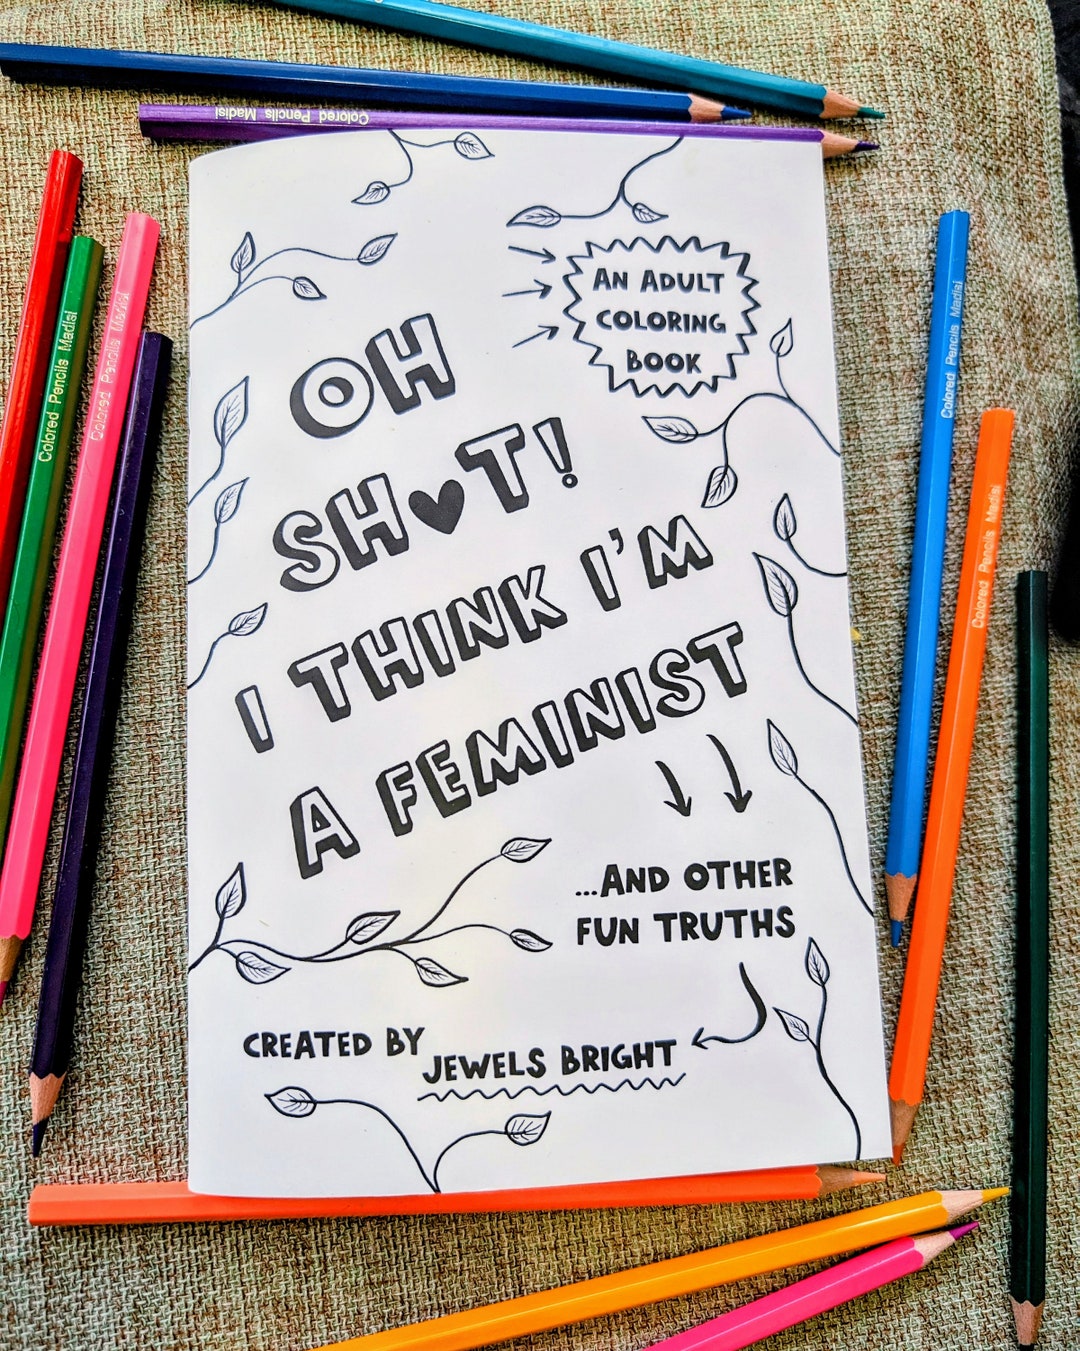 Colored Pencils Madisi
AN ADULT
COLORING
BOOK
OH
SH♥T!
I THINK I'M
A FEMINIST
...AND OTHER
FUN TRUTHS
CREATED BY
JEWELS BRIGHT
Colored Pencils Madisi
Colored Pencils Madisi
Colored Pencils Madisi
Colored Pencils Madisi